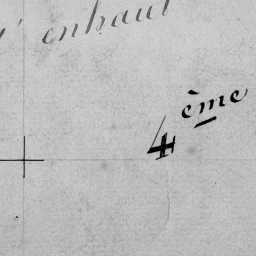 d'enhaut
4ème